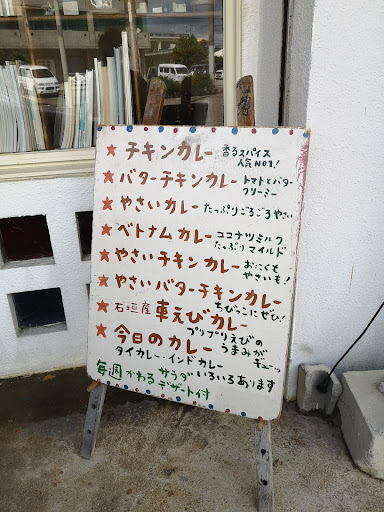 ★チキンカレー 香るスパイス
人気NO1!
★バターチキンカレー トマトとバター
クリーミー
★やさいカレー たっぷりごろごろやさい
★ベトナムカレー ココナツミルク
たっぷりマイルド
★やさいチキンカレー おにくも
やさいも!
★やさいバターチキンカレー
ちびっこにぜひ!
★石垣産車えびカレー
プリプリえびの
うまみが
ギューッ
★今日のカレー
タイカレー・インドカレー
毎週かわるサラダ いろいろあります
デザート付